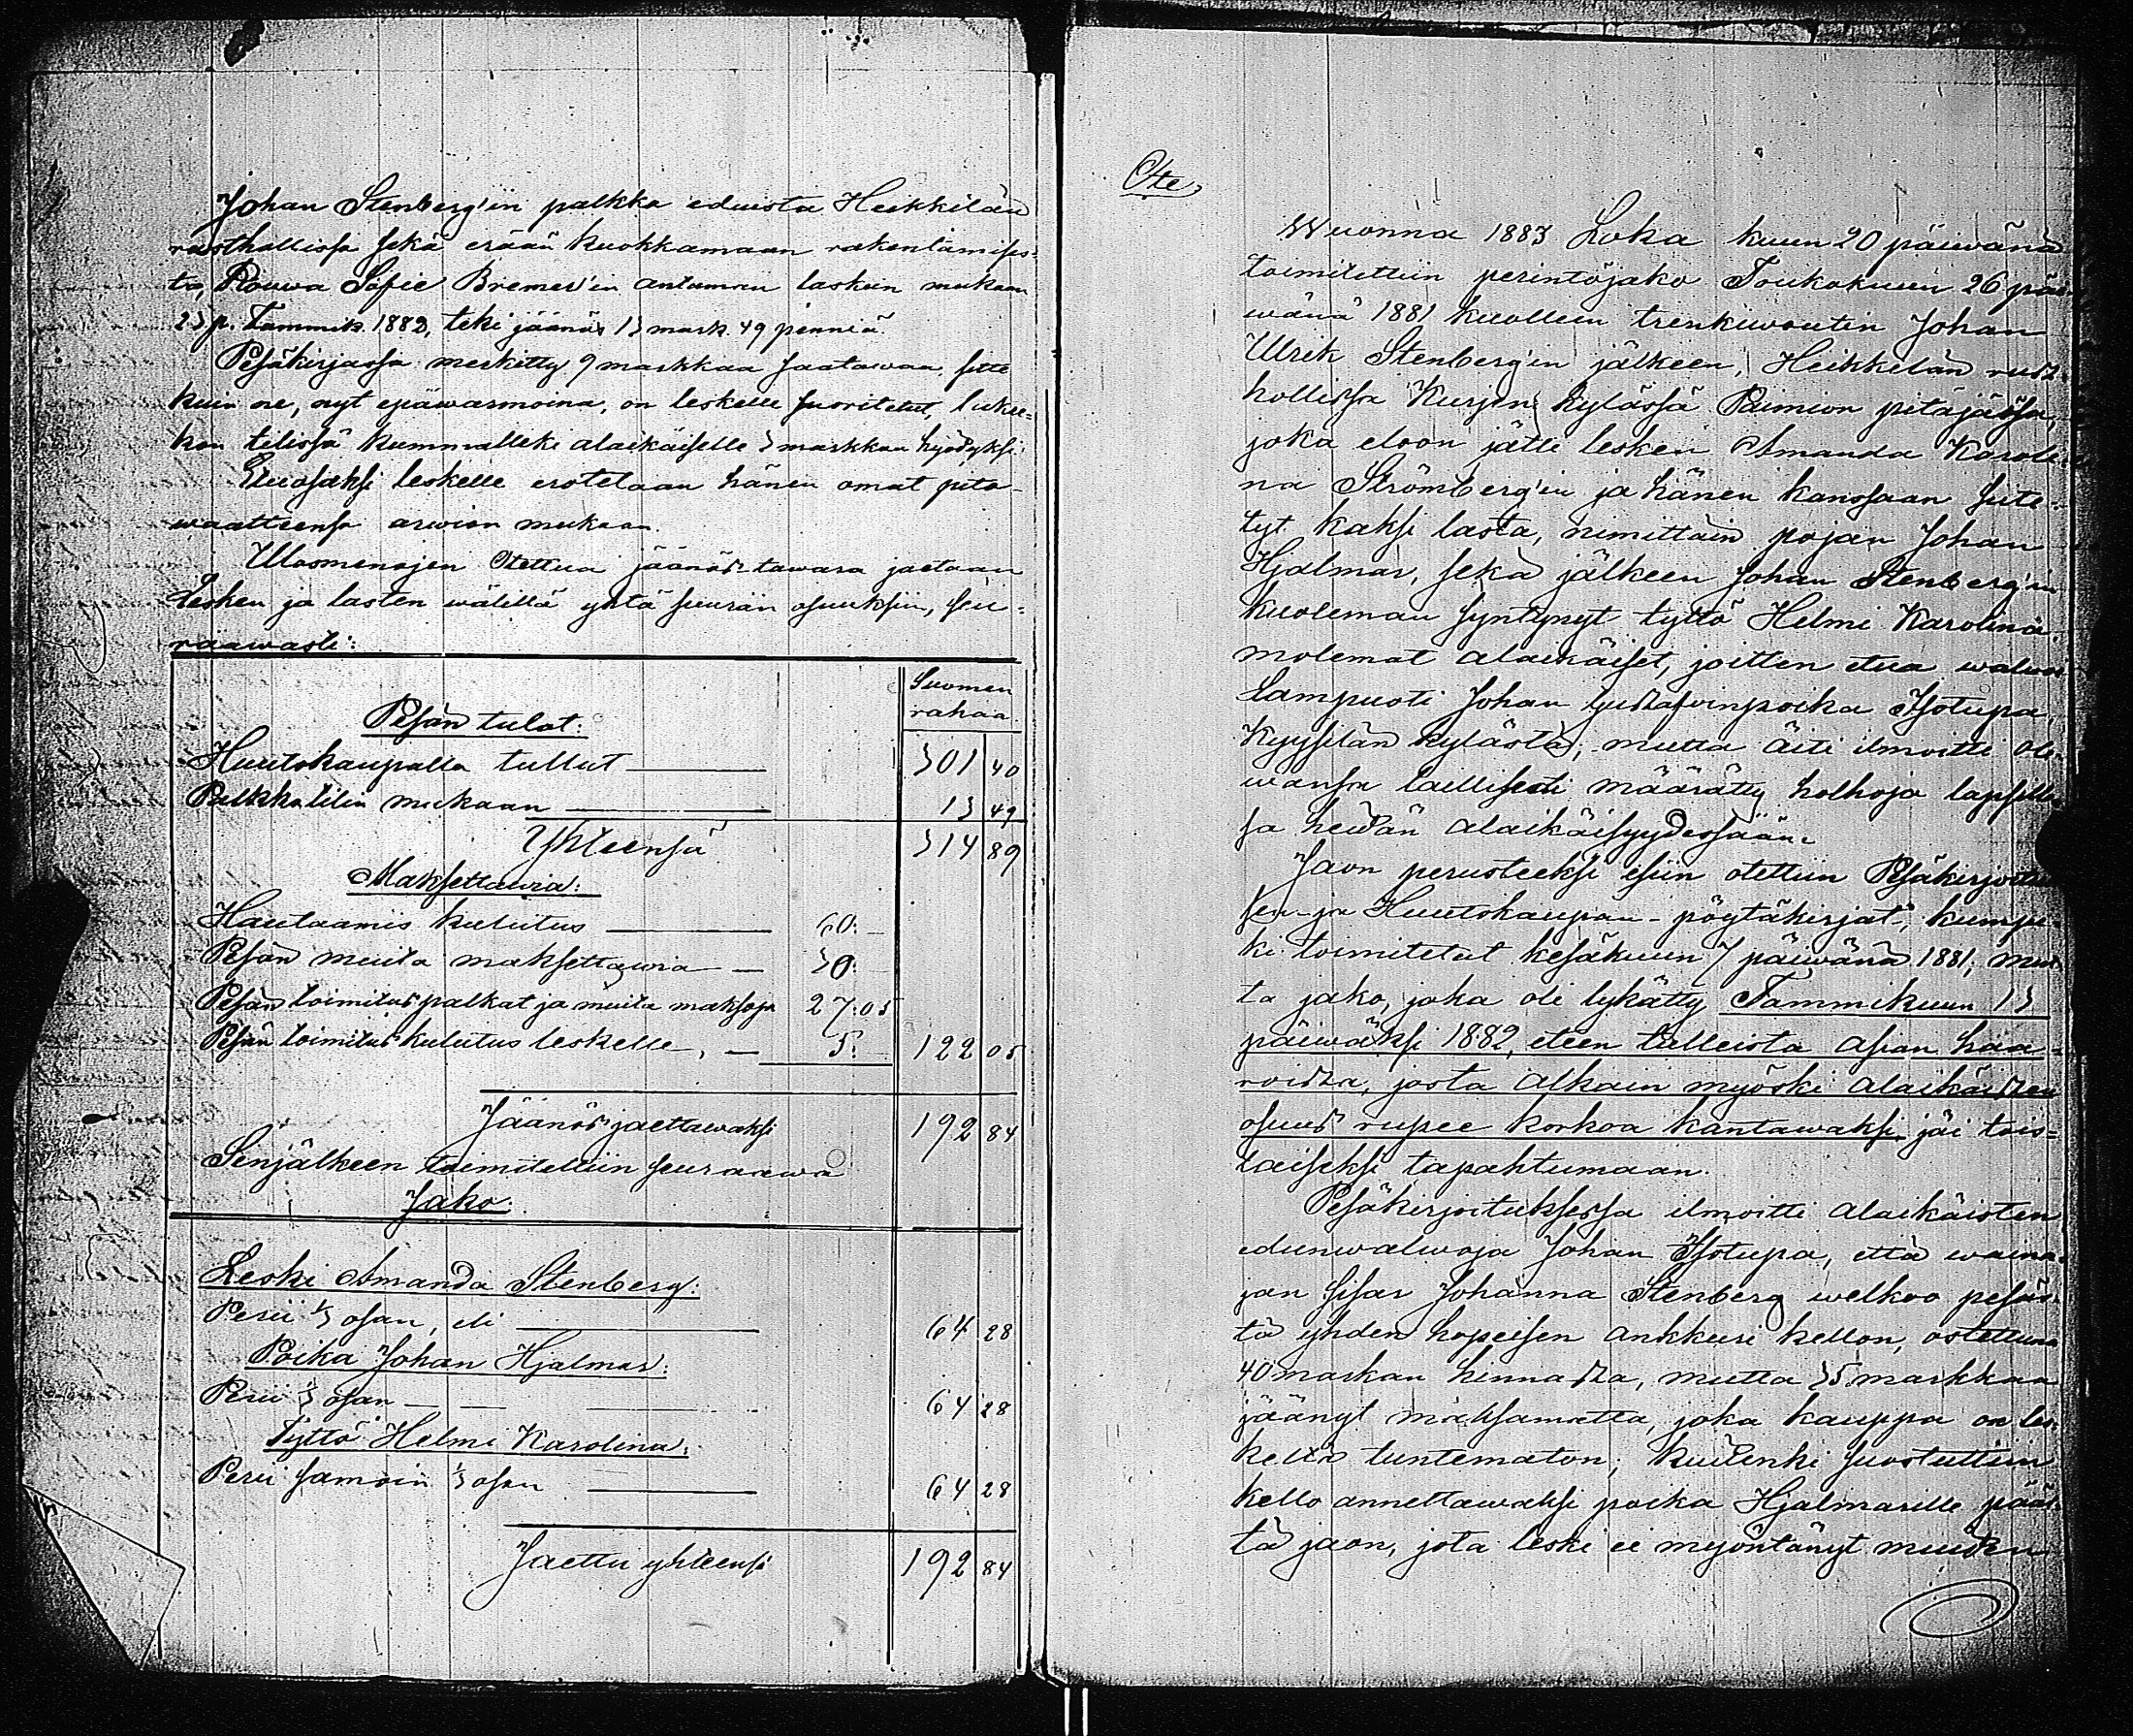 Johan Stenberg'in palkka eduista Heikkilän
rusthollissa sekä erään kuokkamaan rakentamises=
ta, Rouwa Sofie Bremer'in antaman laskun mukaan
23 p. Tammik. 1882, teki jäännös 13 mark. 49 penniä.
Pesäkirjassa merkitty 9 markkaa saatawaa, sitte
kuin ne, nyt epäwarmoina, on leskelle suoritetut, lukee=
kon tilissä kummalleki alaikäiselle 3 markkaa hyödyksi.
Etuosaksi leskelle erotetaan hänen omat pito-
waatteensa arwion mukaan.
Ulosmenojen Otettua jäänös tawara jaetaan
Lesken ja lasten wälillä yhtä suuriin osuuksiin, seu=
raawasti:
Suomen
rahaa.
Pesän tulot:
Huutokaupalla tullut 301 40
Palkkatilin mukaan 13 49
Yhteensä 314 89
Maksettawia:
Hautaamis kulutus 60:
Pesän muita maksettawia 30:
Pesän toimitus palkat ja muita maksoja 27:05
Pesän toimitus kulutus leskelle, 5: 122 05
Jäänös jaettawaksi 192 84
Senjälkeen toimitettiin seuraawa
Jako:
Leski Amanda Stenberg:
Perii 1/3 osan, eli 64 28
Poika Johan Hjalmar:
Perii 1/3 osan 64 28
Tyttö Helmi Karolina:
Perii samoin 1/3 osan 64 28
Jaettu yhteensä 192 84
Ote,
Wuonna 1883 Loka kuun 20 päiwänä
toimitettiin perintöjako Toukokuun 26 päi=
wänä 1881 kuolleen trenkiwoutin Johan
Ulrik Stenberg'in jälkeen, Heikkilän rust=
hollissa Kurjen kylässä Paimion pitäjässä,
joka eloon jätti lesken Amanda Karoli=
na Strömberg'in ja hänen kanssaan siite=
tyt kaksi lasta, nimittäin pojan Johan
Hjalmar, sekä jälkeen Johan Stenberg'in
kuoleman syntynyt tyttö Helmi Karolina,
molemat alaikäiset, joitten etua walwoi
Lampuoti Johan Gustafvinpoika Isotupa,
Kyysilän kylästä; mutta äiti ilmoitti ole=
wansa laillisesti määrätty holhoja lapsille
sa heidän alaikäisyydessään.
Jaon perusteeksi esiin otettiin Pesäkirjoituk
sen- ja Huutokaupan- pöytäkirjat, kumpa
ki toimitetut kesäkuun 7 päiwänä 1881; mut
ta jako, joka oli lykätty Tammikuun 13
päiwäksi 1882, eteen tulleista asian haa=
roista, josta alkain myöski alaikäisten
osuus rupee korkoa kantawaksi jäi tois=
taiseksi tapahtumaan.
Pesäkirjoituksessa ilmoitti alaikäisten
edunwalwoja Johan Isotupa, että waina=
jan sisar Johanna Stenberg welkoo pesäs=
tä yhden hopeisen ankkuri kellon, ostettuna
40 markan hinnasta, mutta 35 markkaa
jäänyt maksamatta, joka kauppa on les=
kellä tuntematon; kuitenki suostuttiin
kello annettawaksi poika Hjalmarille pääl=
tä jaon, jota leski ei myöntänyt muuten